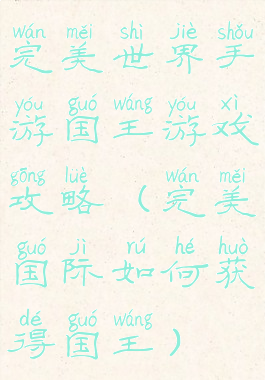 wán měi shì jiè shǒu
完美世界手
yóu guó wáng yóu xì
游国王游戏
gōng lüè wán měi
攻略（完美
guó jì rú hé huò
国际如何获
dé guó wáng
得国王）